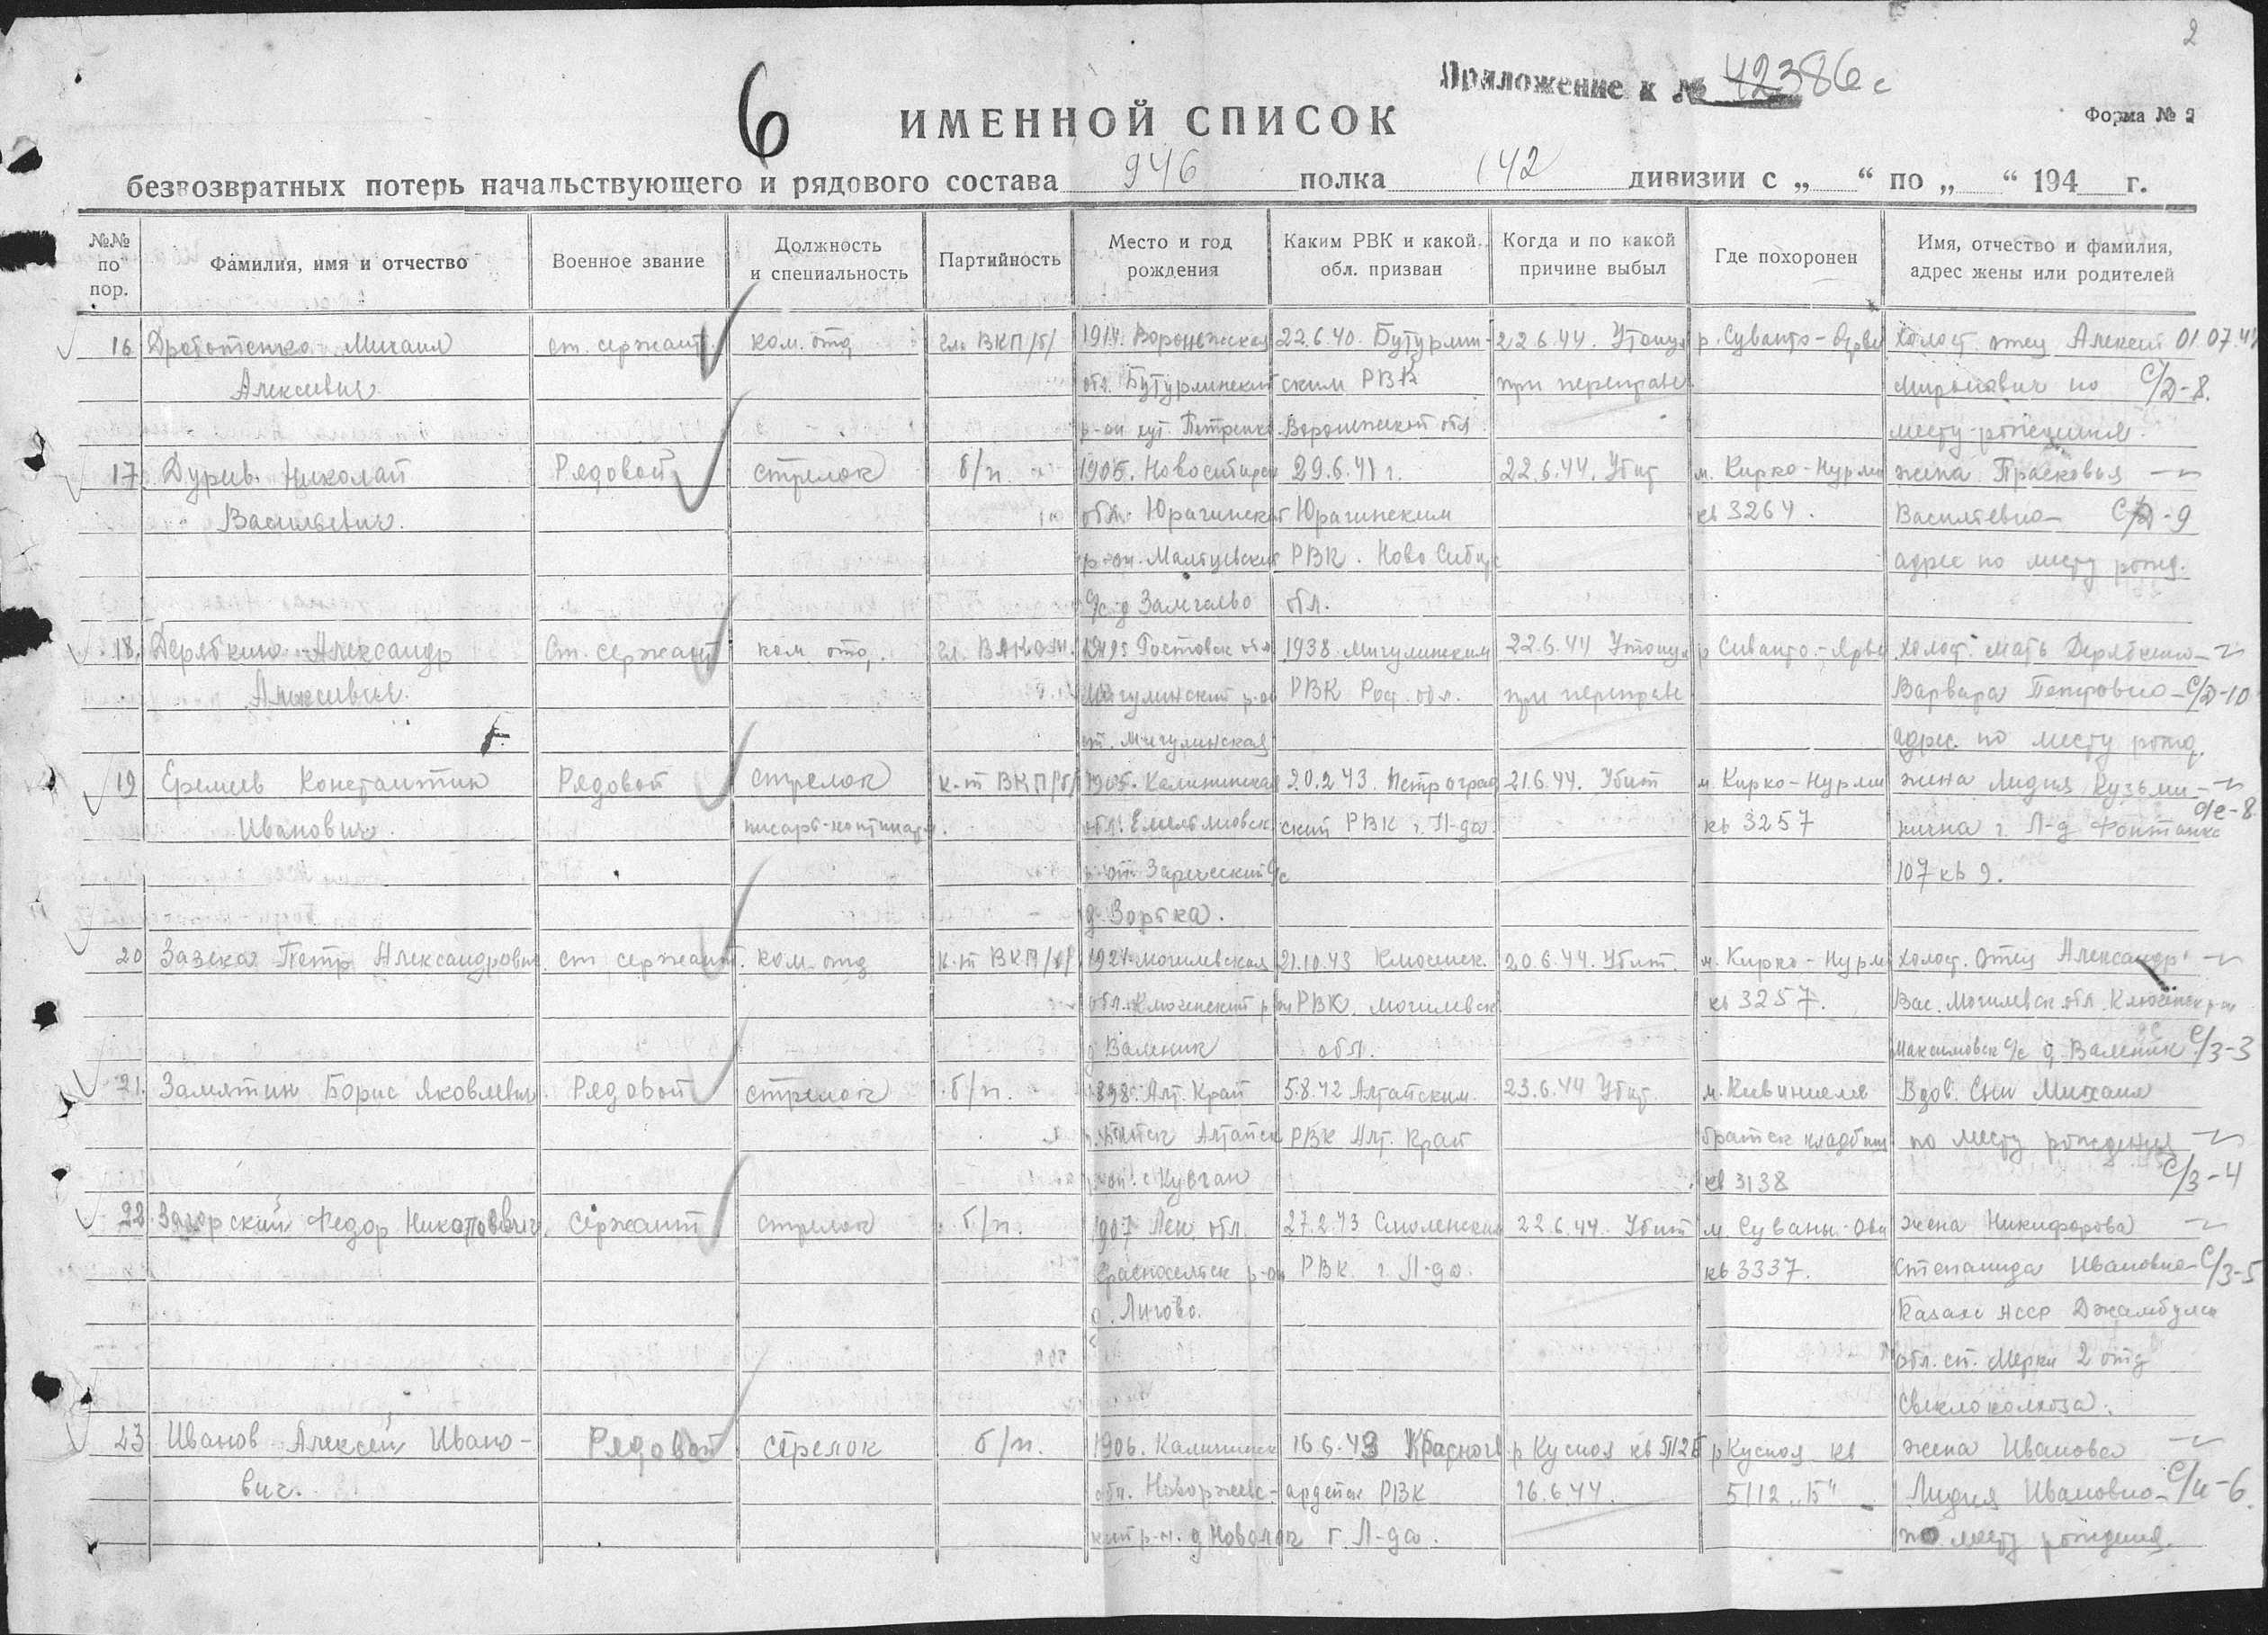 2
Приложение к № 42386с
6
ИМЕННОЙ СПИСОК
Форма № 2
безвозвратных потерь начальствующего и рядового состава 946 полка 142 дивизии с „ “ по „ “ 194 г.
№№ по пор.
Фамилия, имя и отчество
Военное звание
Должность и специальность
Партийность
Место и год рождения
Каким РВК и какой обл. призван
Когда и по какой причине выбыл
Где похоронен
Имя, отчество и фамилия, адрес жены или родителей
16 Михаил ст. сержант ком. отд чл. ВКП/б/ 1914. Воронежская 22.6.40. Бутурлин- 22.6.44. Утонул р. Суванто-Ярви холост. отец Алексей 01.07.44
Алексеевич обл. Бутурлинский ским РВК при переправе Миронович по С/Д-8.
р-он хут. Петренко Воронежской обл. месту рождения.
17. Николай Рядовой стрелок б/п. 1905. Новосибирск 29.6.41 г. 22.6.44. Убит м. Кирко-Нурми жена Прасковья
Васильевич. обл. Юрагинский Юрагинским кв 3264. Васильевна С/Д-9
р-он. Мальцевский РВК. Ново Сибир адрес по месту рожд.
с/с д обл.
18. Дерябкин Александр Ст. сержант ком. отд. чл. Ростовск обл 1938. Мигулинским 22.6.44 Утонул р Суванто-Ярви холост. мать Дерябкина
Алексеевич. Мигулинский р-он РВК Рос. обл. при переправе Варвара Петровна С/Д-10
ст. Мигулинская адрес. по месту рожд.
19 Еремеев Константин Рядовой стрелок к-т ВКП/б/ 1905. Калининская 20.2.43. Петроград 21.6.44. Убит м. Кирко-Нурми жена Лидия Кузьми-
Иванович. писарь- обл. ский РВК г. Л-да кв 3257 нична г. Л-д Фонтанка о/е-8
р-он Зареческий с/с 107 кв 9.
д. Зорька.
20 Зазека Петр Александрович ст сержант. ком. отд к-т ВКП/б/ 1924. Могилевская 21.10.43 20.6.44. Убит. м. Кирко-Нурми холост. Отец Александр
обл. р-он РВК. Могилевск кв 3257. Вас. Могилевск обл.
д обл. Максимовск с/с д. С/З-3
21. Замятин Борис Яковлевич. Рядовой стрелок б/п. 1898. Алт. Край 5.8.42 Алтайским. 23.6.44 Убит. м. Кивиниеми Вдов. Сын Михаил
Алтайск РВК Алт. Край братск кладбищ по месту рождения
с. Куяган кв 3138 С/З-4
22. Загорский Федор Сержант стрелок б/п. 1907 Лен. обл. 27.2.43 Смоленским 22.6.44. Убит м. жена Никифорова
Красносельск р-он РВК. г. Л-да. кв 3337. Степанида Ивановна С/З-5
д. Лигово. Казахс АССР Джамбулск
обл. ст. Мерке 2 отд
Свеклоколхоза.
23 Иванов Алексей Ивано- Рядовой стрелок б/п. 1906. Калининск 16.6.43 Красногв р Кусноя кв 5112Б р Кусноя кв жена Иванова
вич. обл. Новоржевс- ардейск РВК 16.6.44. 5112 „Б“ Лидия Ивановна С/И-6
кий р-н. г. Л-да. по месту рождения.